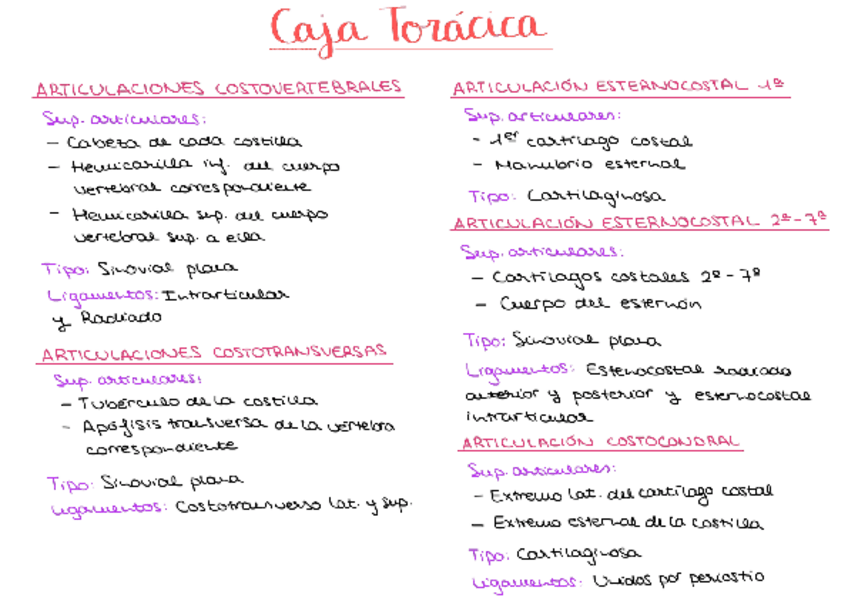 Caja Torácica
ARTICULACIONES COSTOVERTEBRALES
Sup. articulares:
- Cabeza de cada costilla
- Hemicarilla inf. del cuerpo
vertebral correspondiente
- Hemicarilla sup. del cuerpo
vertebral sup. a ella
Tipo: Sinovial plana
Ligamentos: Intrarticular
y Radiado
ARTICULACIONES COSTOTRANSVERSAS
Sup. articulares:
- Tubérculo de la costilla
- Apófisis transversa de la vértebra
correspondiente
Tipo: Sinovial plana
Ligamentos: Costotransverso lat. y sup.
ARTICULACIÓN ESTERNOCOSTAL 1ª
Sup. articulares:
- 1er cartílago costal
- Manubrio esternal
Tipo: Cartilaginosa
ARTICULACIÓN ESTERNOCOSTAL 2ª-7ª
Sup. articulares:
- Cartílagos costales 2º-7º
- Cuerpo del esternón
Tipo: Sinovial plana
Ligamentos: Estenocostal radiado
anterior y posterior y esternocostal
intrarticular
ARTICULACIÓN COSTOCONDRAL
Sup. articulares:
- Extremo lat. del cartílago costal
- Extremo esternal de la costilla
Tipo: Cartilaginosa
Ligamentos: Unidos por periostio